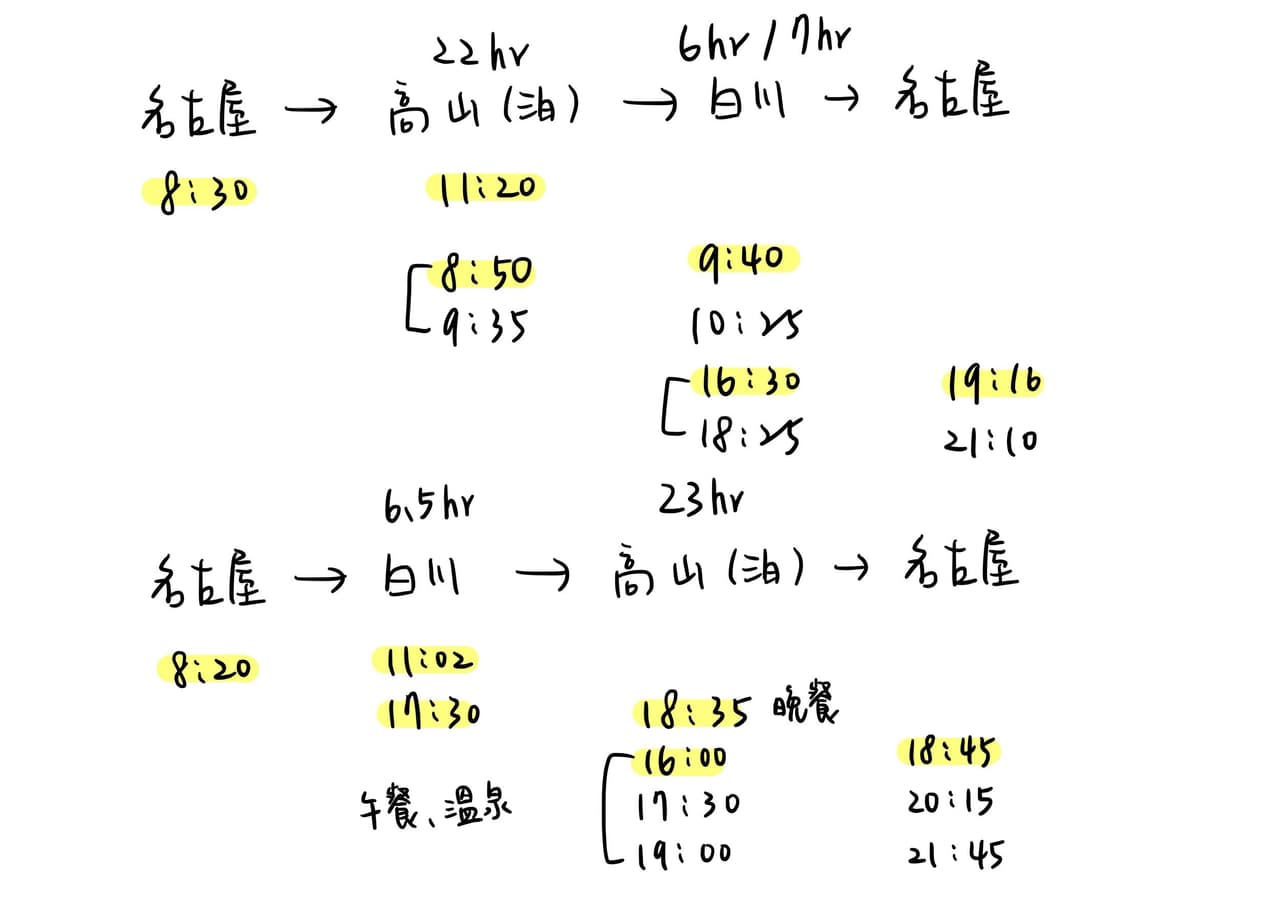 22hr 6hr / 7hr
名古屋 → 高山(泊) → 白川 → 名古屋
8:30 11:20
8:50 9:40
9:35 10:25
16:30 19:16
18:25 21:10
6.5hr 23hr
名古屋 → 白川 → 高山(泊) → 名古屋
8:20 11:02
17:30 18:35 晚餐
16:00 18:45
午餐、溫泉 17:30 20:15
19:00 21:45